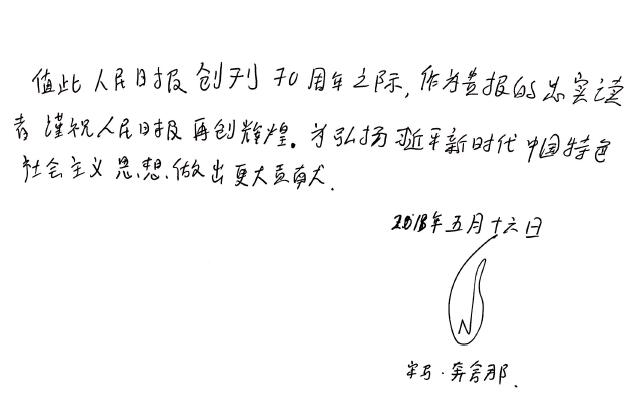 值此人民日报创刊70周年之际，作为贵报的忠实读
者谨祝人民日报再创辉煌。为弘扬习近平新时代中国特色
社会主义思想做出更大贡献.
2018年五月十六日
宋马·奔舍那.